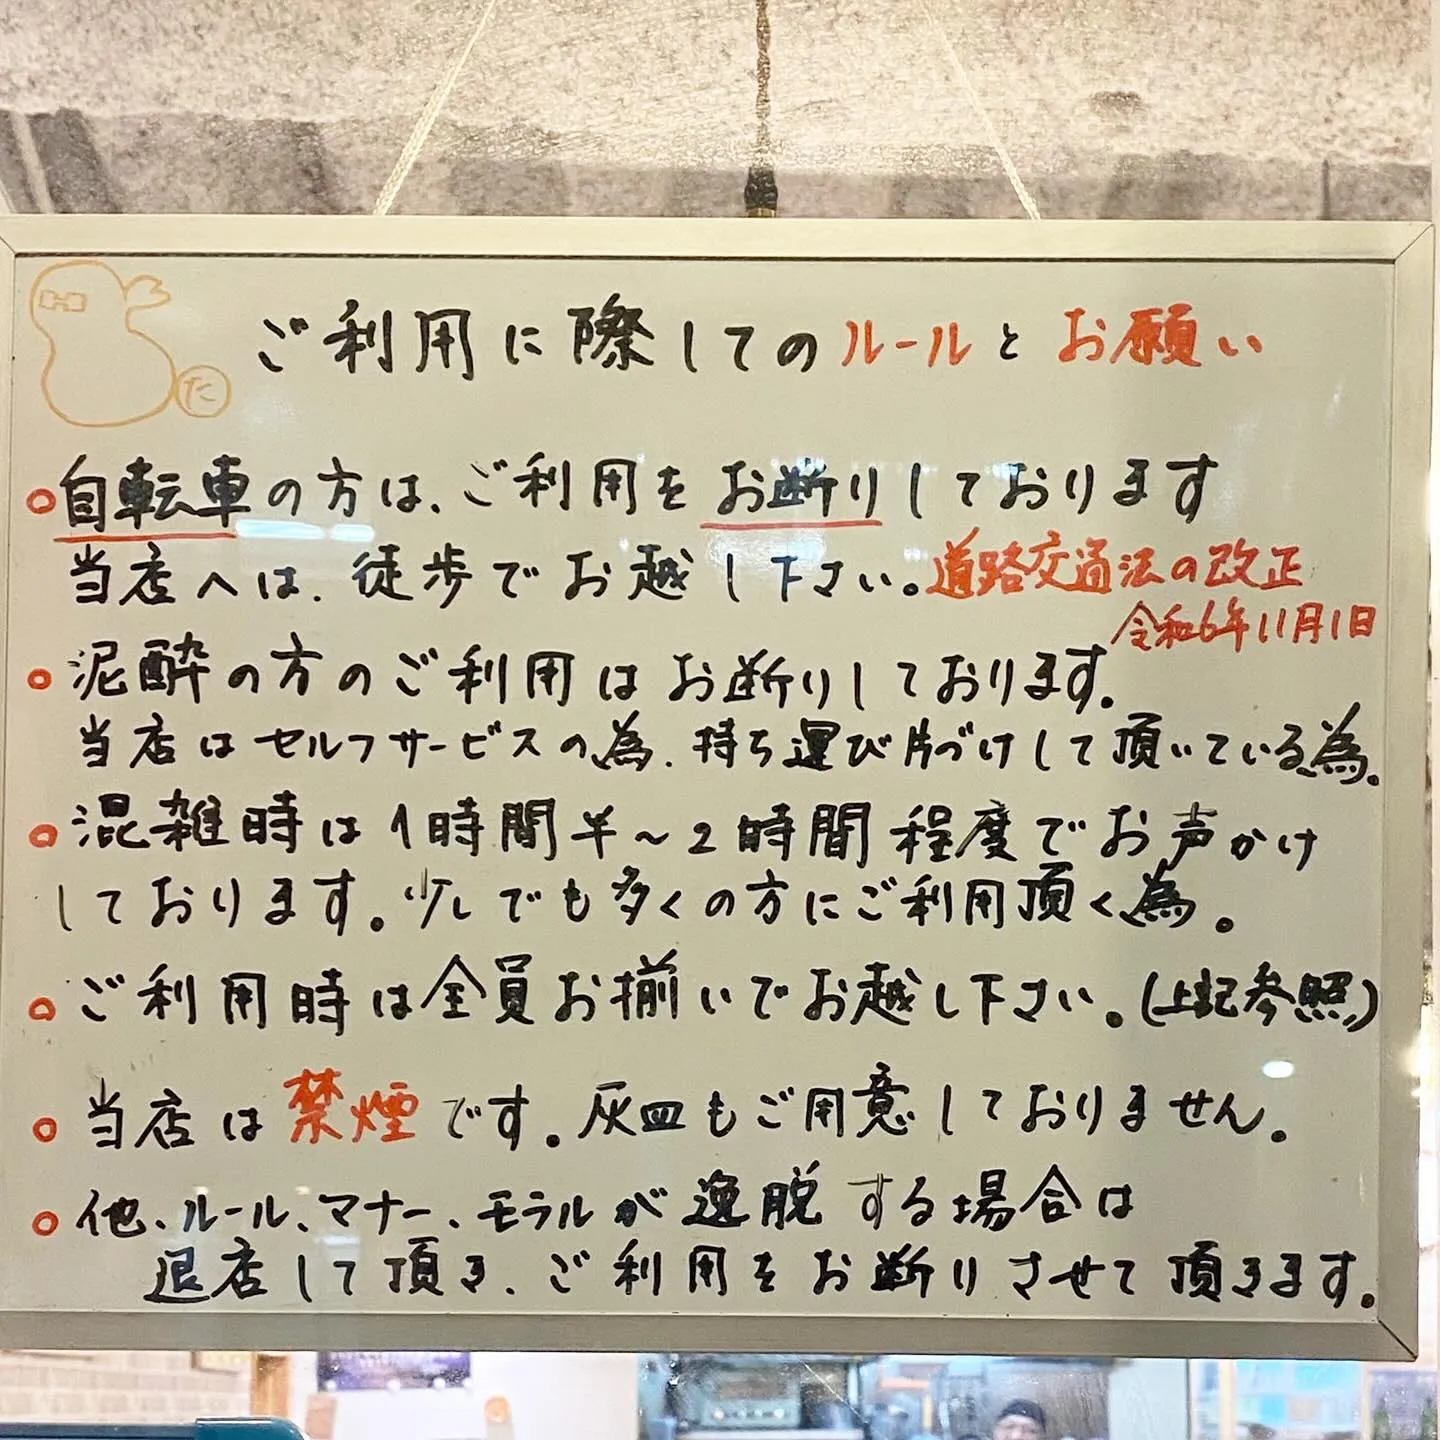 た
ご利用に際してのルールとお願い
○自転車の方は、ご利用をお断りしております
当店へは、徒歩でお越し下さい。道路交通法の改正
令和6年11月1日
○泥酔の方のご利用はお断りしております。
当店はセルフサービスの為、持ち運び片づけして頂いている為。
○混雑時は1時間半~2時間程度でお声かけ
しております。少しでも多くの方にご利用頂く為。
○ご利用時は全員お揃いでお越し下さい。(上記参照)
○当店は禁煙です。灰皿もご用意しておりません。
○他、ルール、マナー、モラルが逸脱する場合は
退店して頂き、ご利用をお断りさせて頂きます。